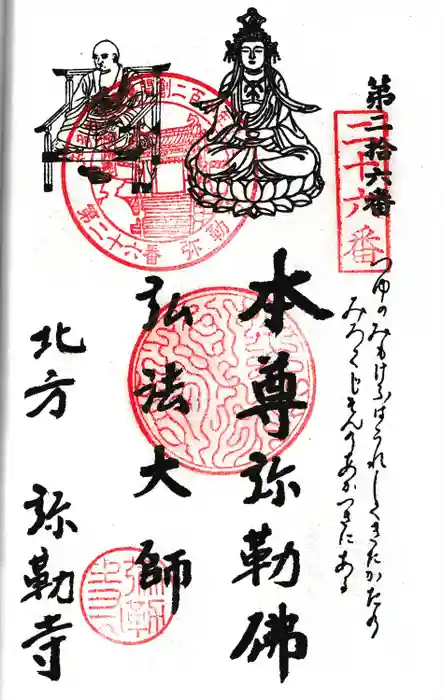 第二拾六番
二十六番
つゆのみもけふはうれしくきたかたの
みろくじそんのあかつきにある
本尊弥勒佛
弘法大師
北方 弥勒寺
第二十六番 弥勒